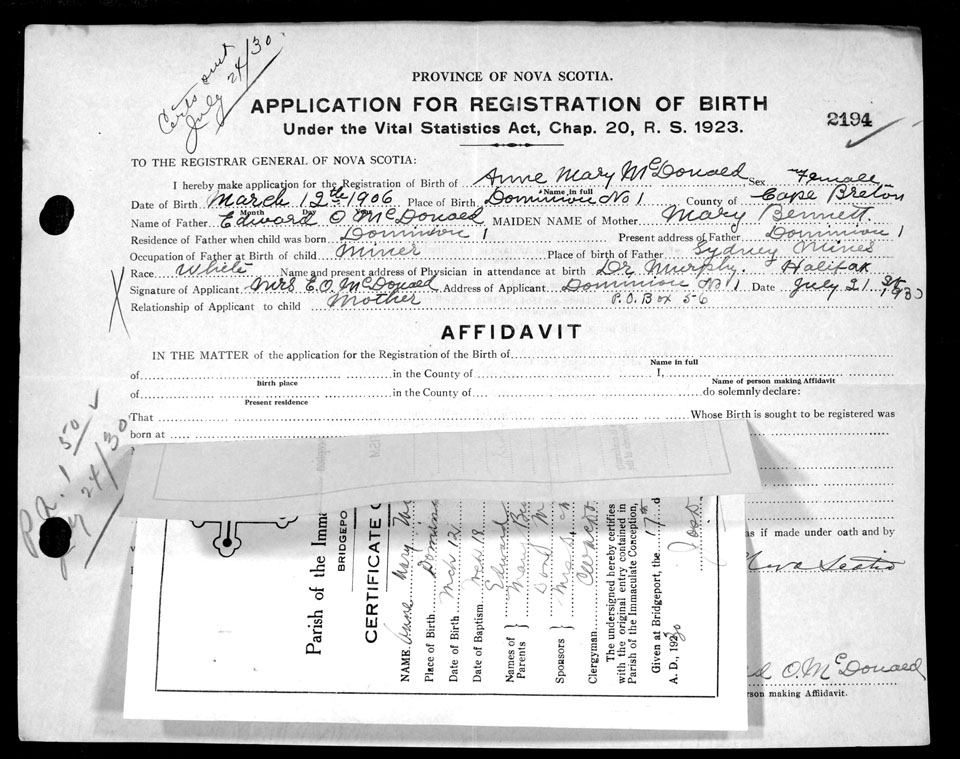 Certs out
July 24/30
PROVINCE OF NOVA SCOTIA.
APPLICATION FOR REGISTRATION OF BIRTH
Under the Vital Statistics Act, Chap. 20, R. S. 1923.
2194
TO THE REGISTRAR GENERAL OF NOVA SCOTIA:
I hereby make application for the Registration of Birth of Anne Mary McDonald Sex Female
Name in full
Date of Birth March 12th 1906 Place of Birth Dominion No 1 County of Cape Breton
Month Day
Name of Father Edward O McDonald MAIDEN NAME of Mother Mary Bennett.
Residence of Father when child was born Dominion 1 Present address of Father Dominion 1
Occupation of Father at Birth of child Miner Place of birth of Father Sydney Mines
Race White Name and present address of Physician in attendance at birth Dr Murphy. Halifax
Signature of Applicant Mrs E.O. McDonald Address of Applicant Dominion No 1 Date July 21st 1930
Relationship of Applicant to child Mother P.O. Box 56
AFFIDAVIT
IN THE MATTER of the application for the Registration of the Birth of
Name in full
of in the County of I,
Birth place Name of person making Affidavit
of in the County of do solemnly declare:
Present residence
That Whose Birth is sought to be registered was
born at
1 50
24/30
as if made under oath and by
Nova Scotia
O. McDonald
making Affidavit.
Parish of the Imma
BRIDGEPO
CERTIFICATE O
NAME Anne Mary
Place of Birth Dominion
Date of Birth Mch 12
Date of Baptism Mch 18
Names of Parents Edward
Mary
Sponsors
Clergyman
The undersigned hereby certifies
with the original entry contained in
Parish of the Immaculate Conception,
Given at Bridgeport, the 17th d
A. D., 1930